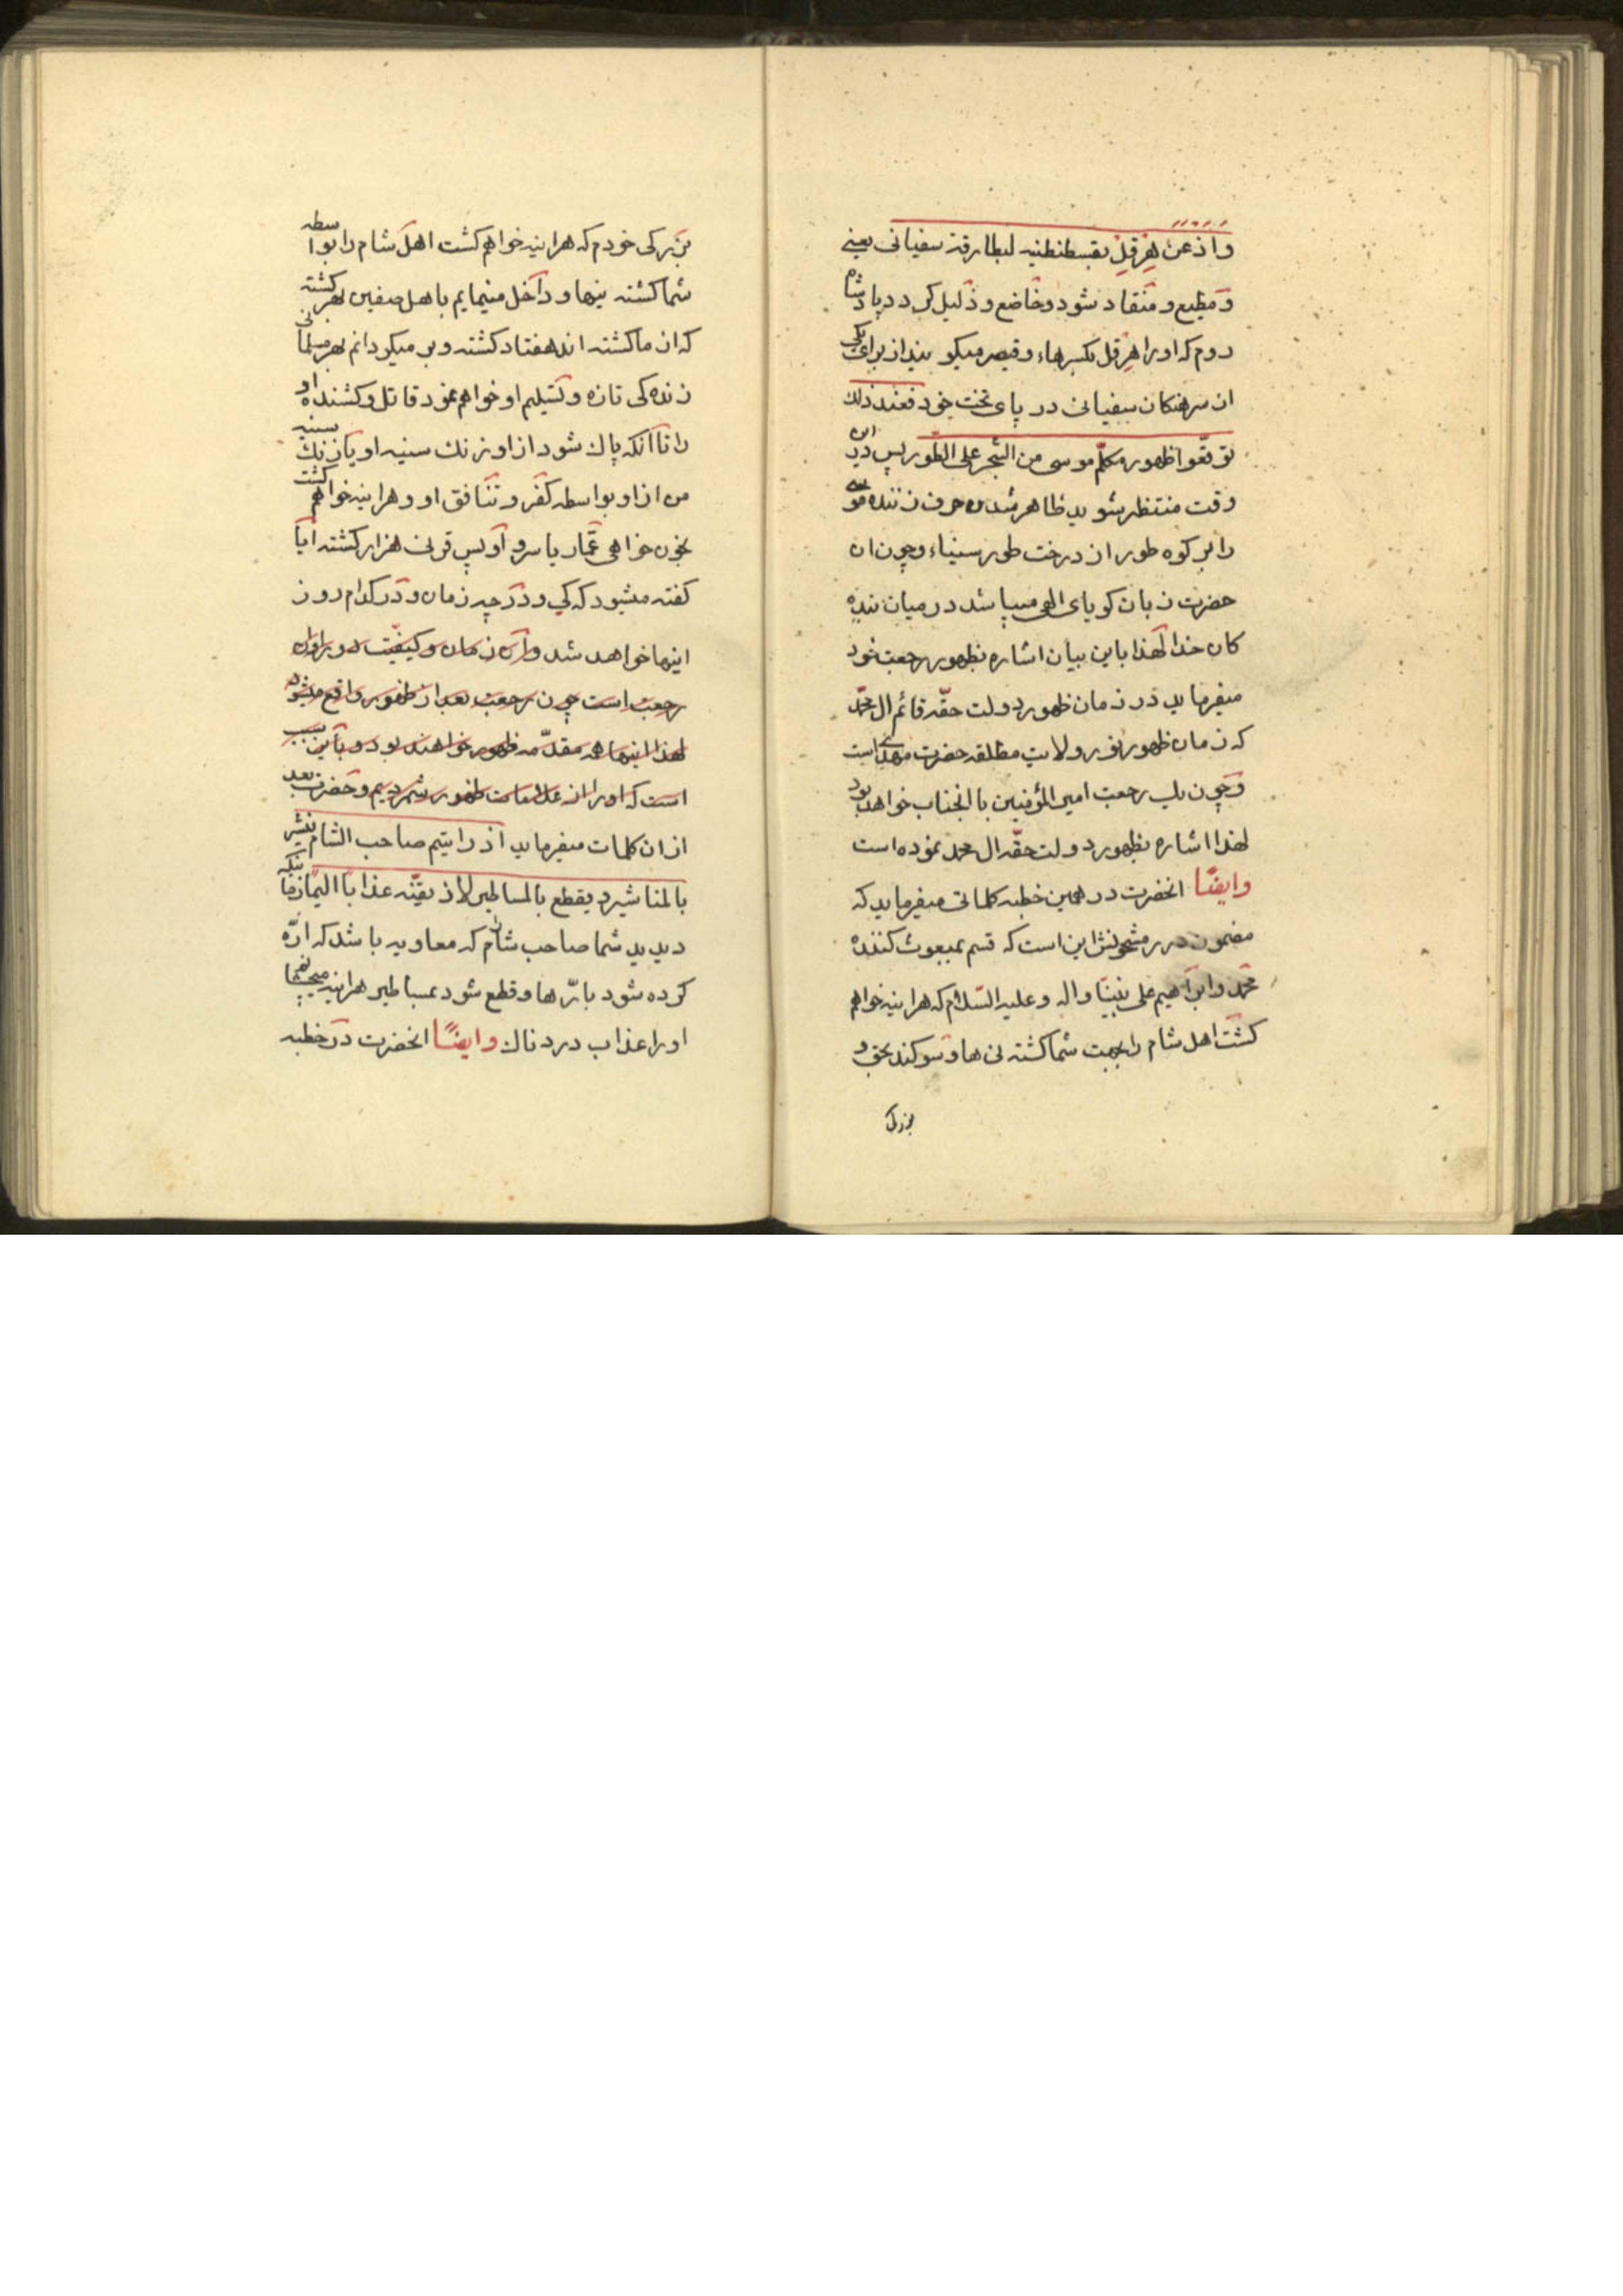 واذعن هِرَقِلْ بقسطنطنیه لبطارقة سفیانی یعنی
و مطیع و منقاد شود و خاضع و ذلیل کردد پادشاه
روم که اورا هِرقل بکسرهاء و قیصر میکویند از برای یکی
از سرهنکان سفیانی در پای تخت خود فعند ذلك
توقعّوا ظهور مکلّم موسی من الشجر علی الطّور پس در این
وقت منتظر شوید ظاهر شدن حرف زننده موسی
را بر کوه طور از درخت طور سیناء و چون ان
حضرت زبان کویای الهی میباشد در میان بنده
کان خدا لهذا باین بیان اشاره بظهور رجعت خود
میفرماید در زمان ظهور دولت حقّه قائم ال محمّد
که زمان ظهور نور ولایت مطلقه حضرت مهدی است
و چون رجعت امیر المؤمنین با انجناب خواهد بود
لهذا اشاره بظهور دولت حقّه ال محمد نموده است
وایضًا انحضرت در همین خطبه کلماتی میفرماید که
مضمون درر مشحونش این است که قسم بمبعوث کننده
محمّد وابراهیم علی نبیّنا واله وعلیه السّلام که هراینه خواهم
کشت اهل شام را بجهت شما کشته نی ها و سوکند بحق و
بزرک
بزرکی خودم که هراینه خواهم کشت اهل شام را بواسطه
شما کشته نیها و داخل مینمایم باهل صفین بهر کشته
که از ما کشته اند هفتاد کشته و بر میکردانم بهر مسلمانی
زنده کی تازه و تسلیم او خواهم نمود قاتل و کشنده او
را تا آنکه پاك شود از او زنك سینه او یا زنك سینه
من از او بواسطه کفر و تنافق او و هراینه خواهم کشت
بخون خواهی عمّار یاسر و اویس قرنی هزار کشته ایا
کفته میشود که کی و در چه زمان و در کدام روز
اینها خواهد شد و آن زمان و کیفیّت در اوّل
رجعت است چون رجعت بعد از ظهور واقع میشود
لهذا اینها همه مقدّمه ظهور خواهند بود و باین سبب
است که اورا از علامات ظهور شمردیم و حضرت بعد
از ان کلمات میفرماید اذ رایتم صاحب الشام ینشر
بالمناشیر و یقطع بالمساطیر لاذیقنّه عذابًا الیمًا زمانیکه
دیدید شما صاحب شام را که معاویه باشد که ارّه
کرده شود بارّه ها و قطع شود بمساطیر هراینه میچشانم
اورا عذاب دردناك وایضًا انحضرت در خطبه